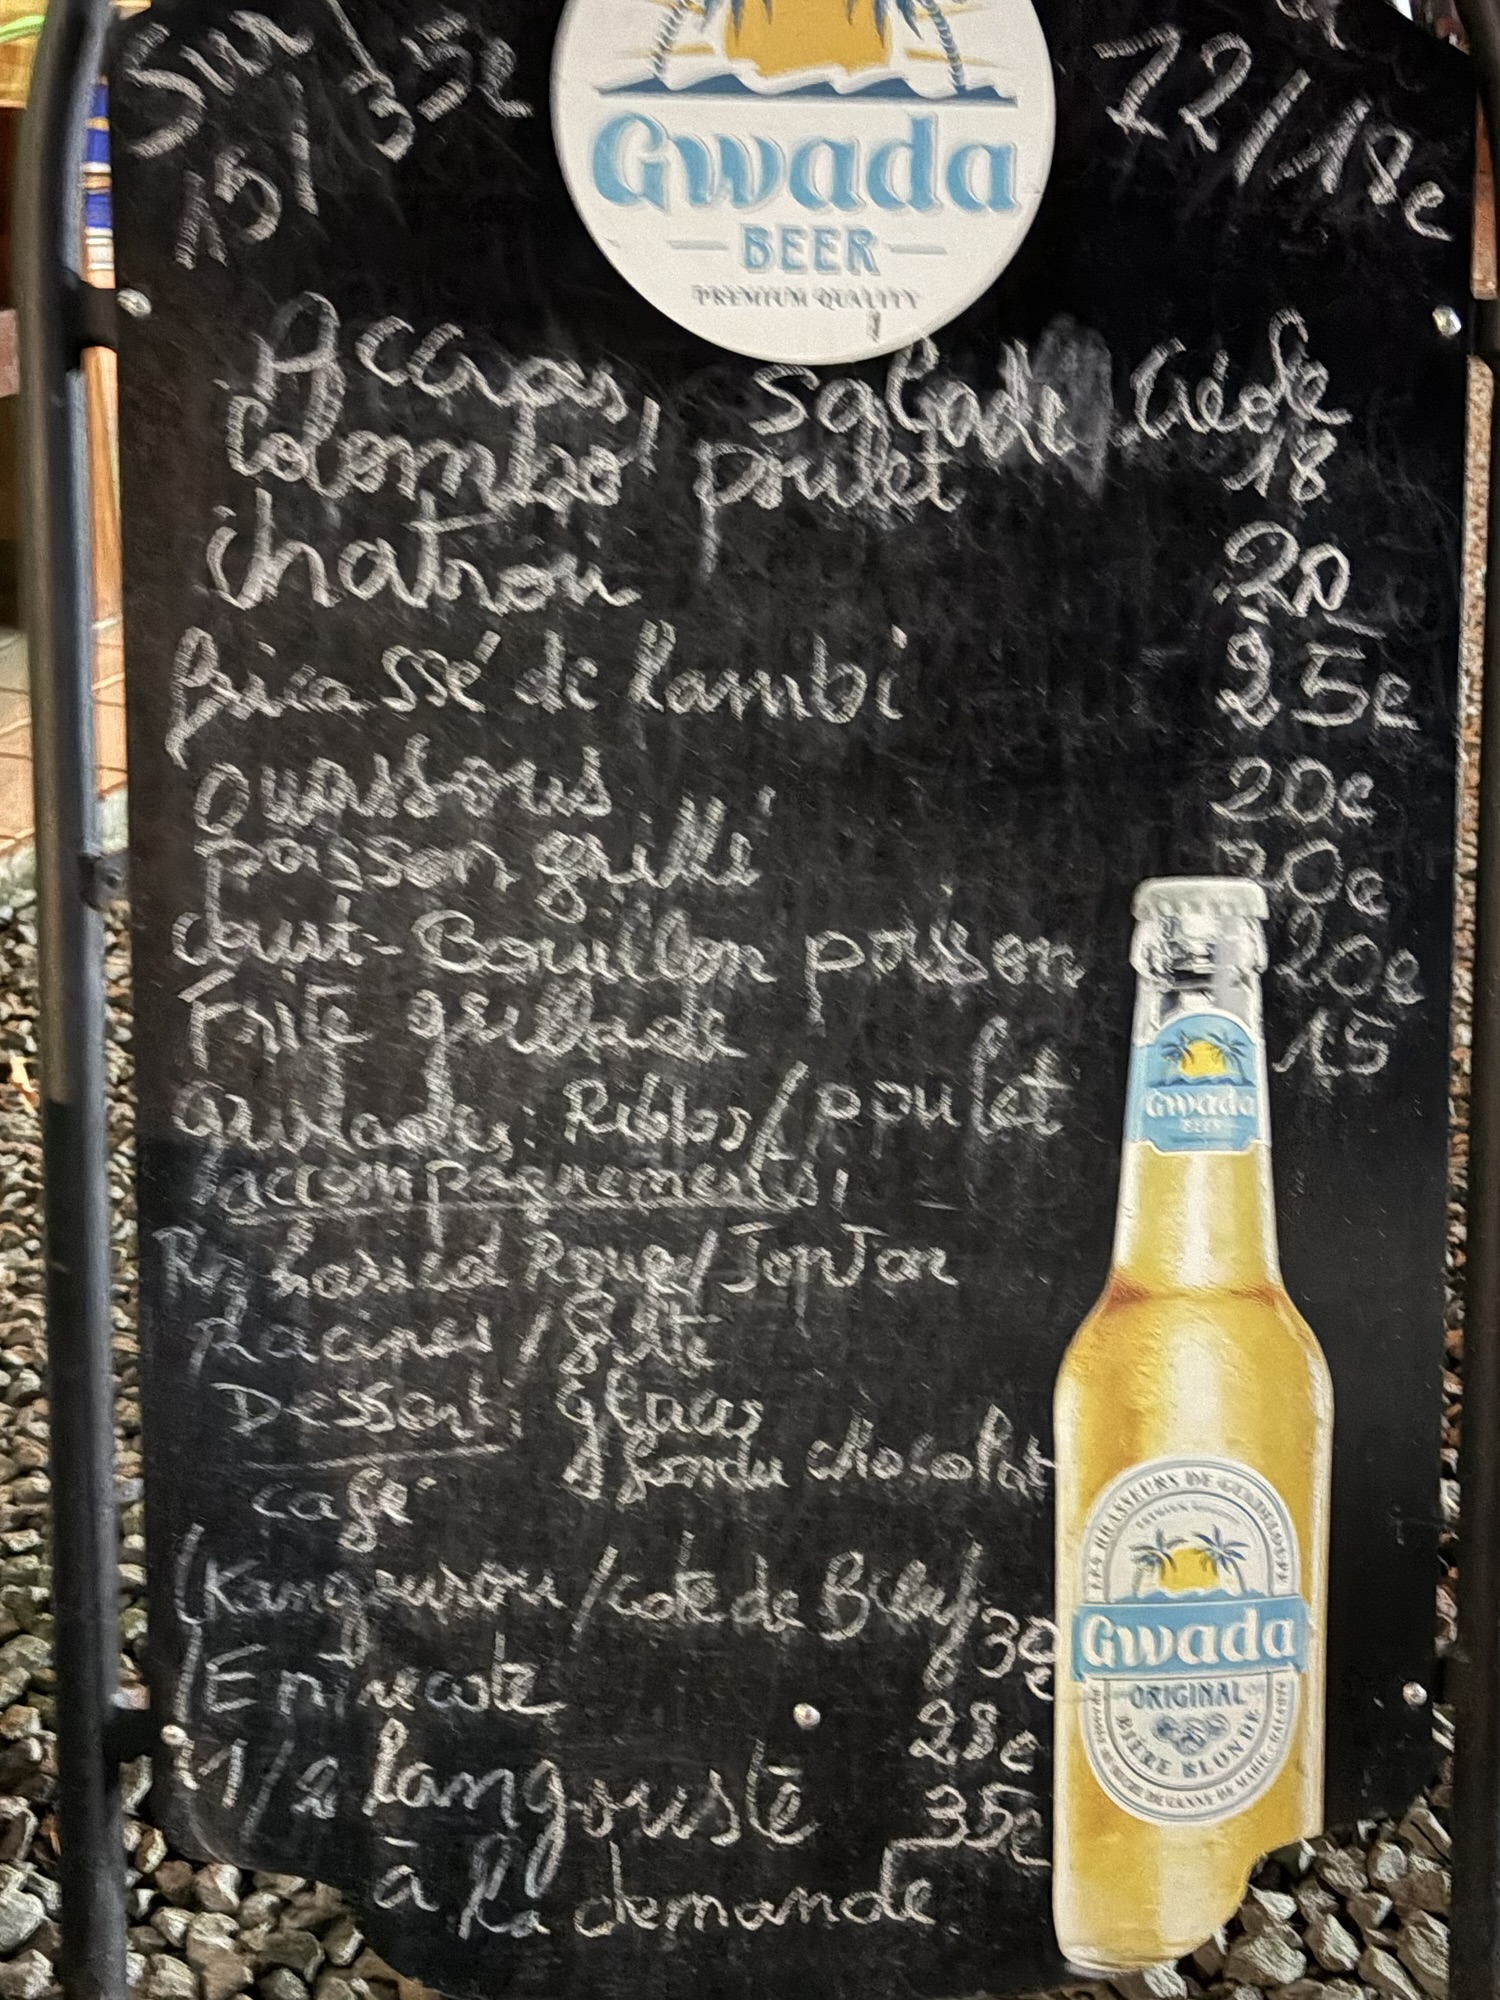 Sur 35€
15/
12/18€
Gwada
BEER
PREMIUM QUALITY
Accras, salade
Colombo poulet 18
chatrou 20
fricassé de lambi 25€
ouassous 20€
poisson grillé 20€
Court-Bouillon poisson 20€
Frite grillade 15
Grillades: Ribbs/poulet
accompagnements,
Riz haricot Rouge/TonTon
Racines/
Dessert, glaces
fondu chocolat
café
(Kangourou/cote de Bœuf 30€
(Entrecote 28€
1/2 langouste 35€
à la demande
Gwada
BEER
LES BRASSEURS DE GUADELOUPE
Gwada
ORIGINAL
BIÈRE BLONDE